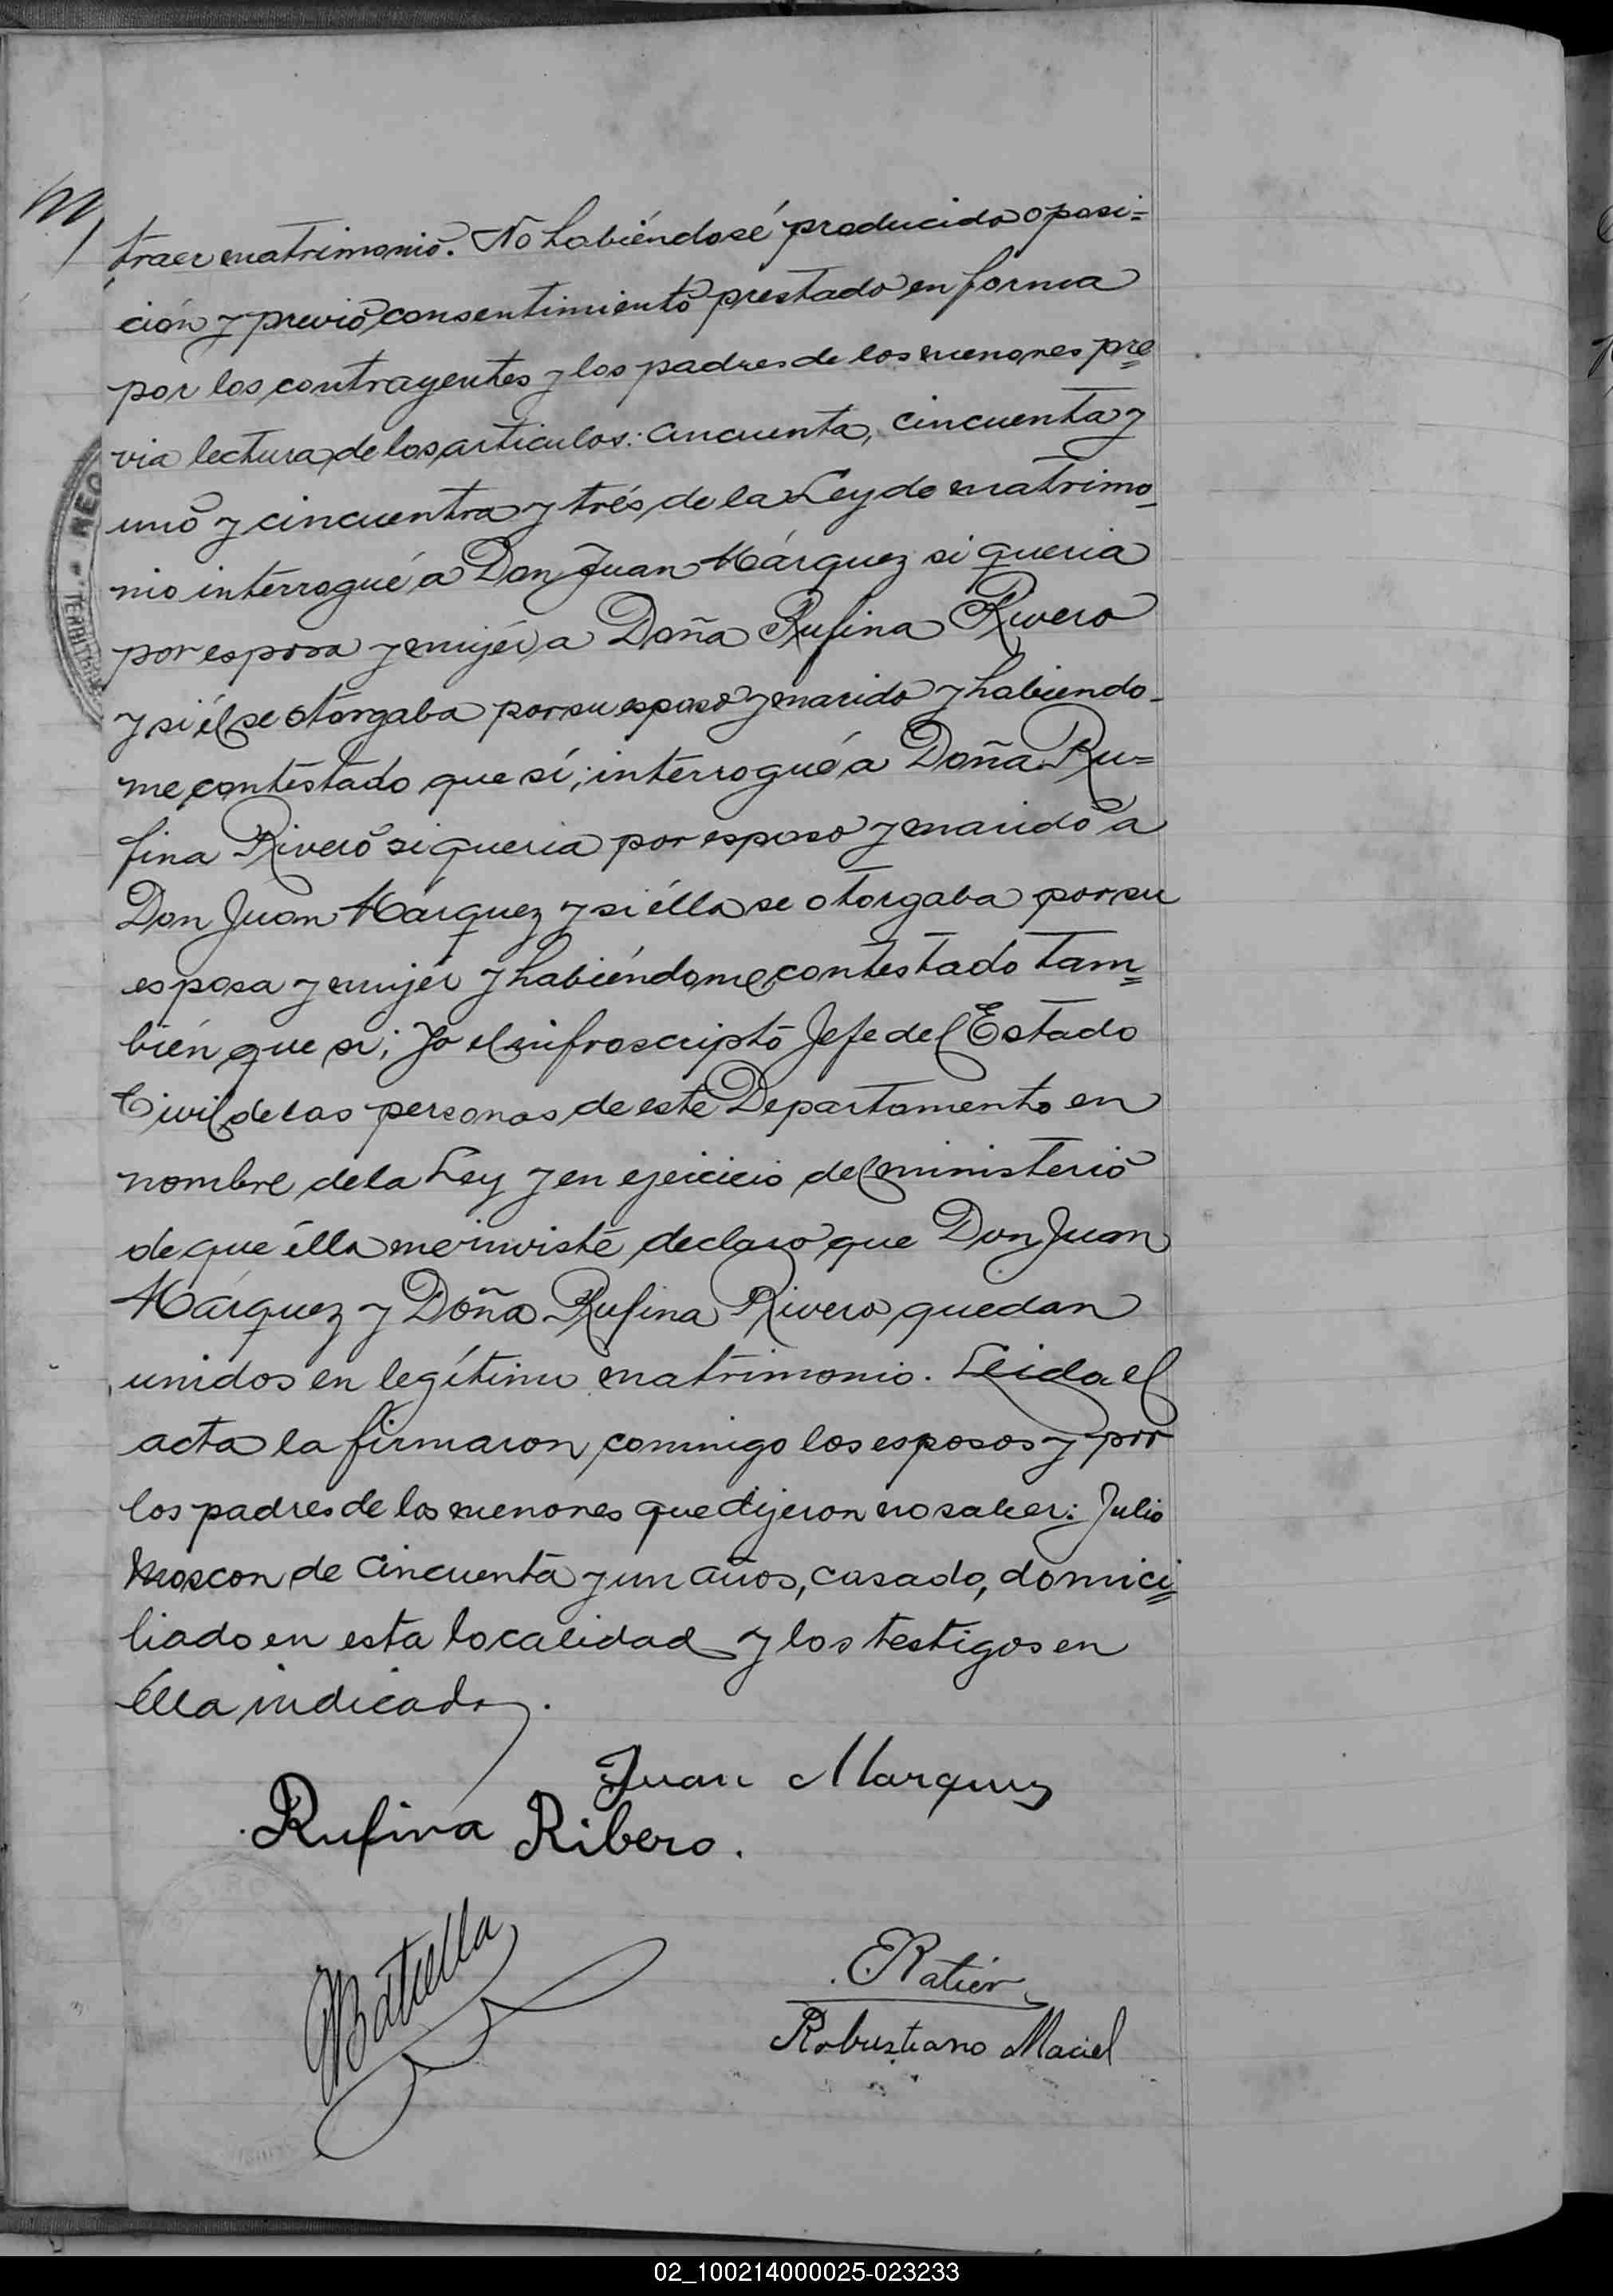 traer matrimonio. No habiéndosé producido oposi=
ción y previo consentimiento prestado en forma
por los contrayentes y los padres de los menores pre=
via lectura de los articulos: cincuenta, cincuenta y
uno y cincuentra y trés de la Ley de matrimo-
nio interrogué a Don Juan Márquez si queria
por esposa y mujér a Doña Rufina Rivero
y si él se otorgaba por su esposo y marido y habiendo-
me contestado que sí; interrogué a Doña Ru=
fina Rivero si queria por esposo y marido a
Don Juan Márquez y si élla se otorgaba por su
esposa y mujér y habiéndome contestado tam=
bién que si; Yo el infroscripto Jefe del Estado
Civil de las personas de este Departamento en
nombre de la Ley y en ejercicio del ministerio
de que élla me inviste declaro que Don Juan
Márquez y Doña Rufina Rivero quedan
unidos en legítimo matrimonio. Leida el
acta la firmaron conmigo los esposos y por
los padres de los menores que dijeron no saber: Julio
Moscon de cincuenta y un años, casado, domici=
liado en esta localidad y los testigos en
élla indicados.
Juan Marquez
Rufina Ribero.
Ratier
Robustiano Maciel
02_100214000025-023233